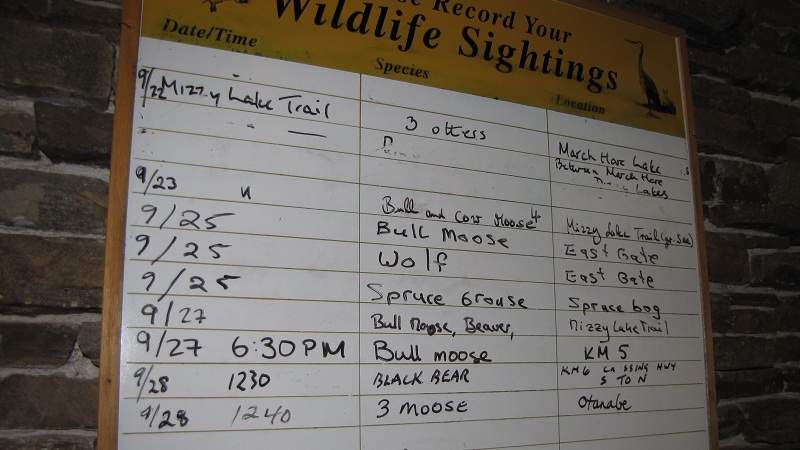 Record Your
Wildlife Sightings
Date/Time Species Location
9/22 Mizzy Lake Trail 3 otters March Hare Lake
Between March Hare
Lakes
9/23 Bull and Cow Moose Mizzy Lake Trail
9/25 Bull Moose East Gate
9/25 Wolf East Gate
9/25 Spruce Grouse Spruce bog
9/27 Bull Moose, Beaver, Mizzy Lake Trail
9/27 6:30PM Bull moose KM 5
9/28 1230 BLACK BEAR KM6 HWY
S TO N
9/28 1240 3 MOOSE Otanabe